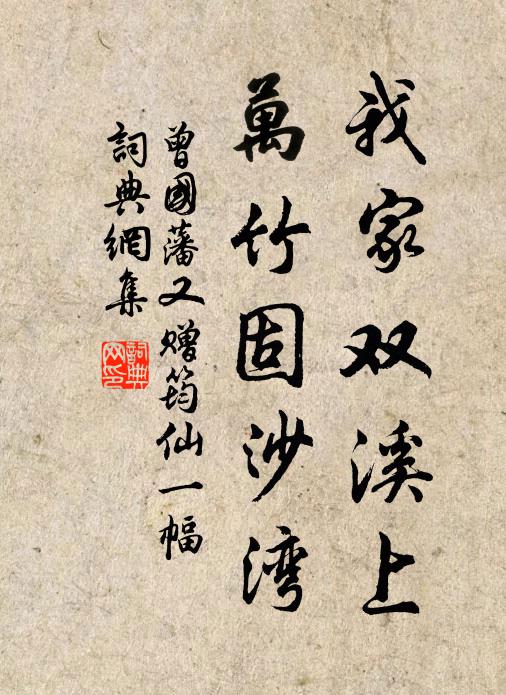 我家双溪上
萬竹固沙湾
曾國藩又赠筠仙一幅
詞典網集
詞典网印